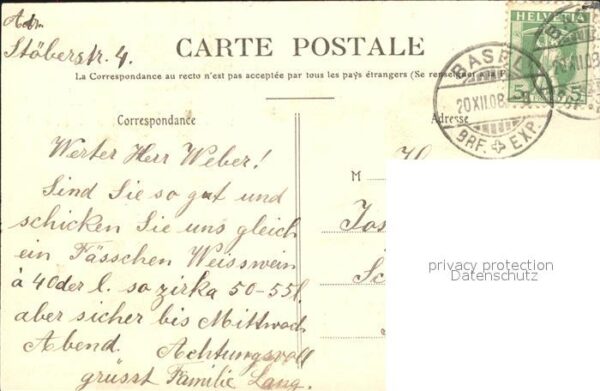 Adr.
Stöberstr. 4.
CARTE POSTALE
La Correspondance au recto n'est pas acceptée par tous les pays étrangers (Se renseigner à la P
HELVETIA
5
5
BASEL
20XII.08.
BRF. EXP.
Correspondance
Adresse
Werter Herr Weber!
Sind Sie so gut und
schicken Sie uns gleich
ein Fässchen Weisswein
à 40der l. so zirka 50-55l.
aber sicher bis Mittwoch
Abend. Achtungsvoll
grüsst Familie Lang.
M
privacy protection
Datenschutz